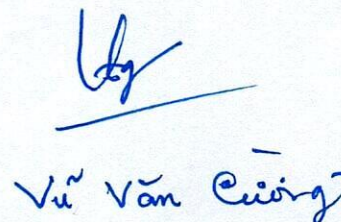 Vũ Văn Cường